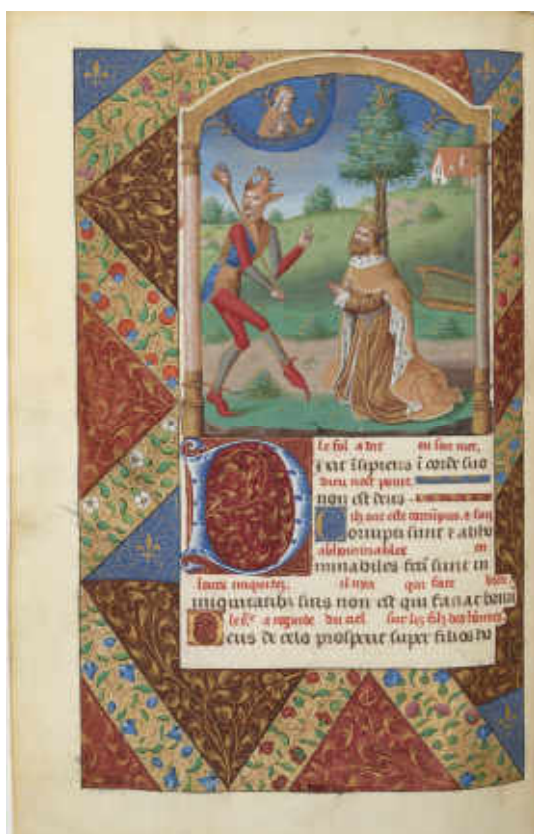 le fol a dit en son cuer,
Dixit isipiens i corde suo
dieu nest point.
non est deus
Ilz ont este corrumpus. e sont
Corrupti sunt et abho
abhominables en
minabiles facti sunt in
leurs iniquitez, il nya qui face bien.
iniquitatibz suis non est qui faciat bonu
le sr a regarde du ciel sur les filz des homes.
Deus de celo prospexit super filios ho